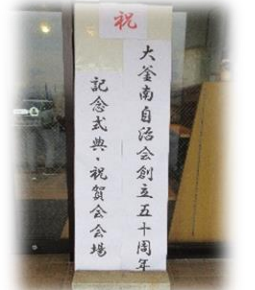 祝
大釜南自治会創立五十周年
記念式典・祝賀会会場